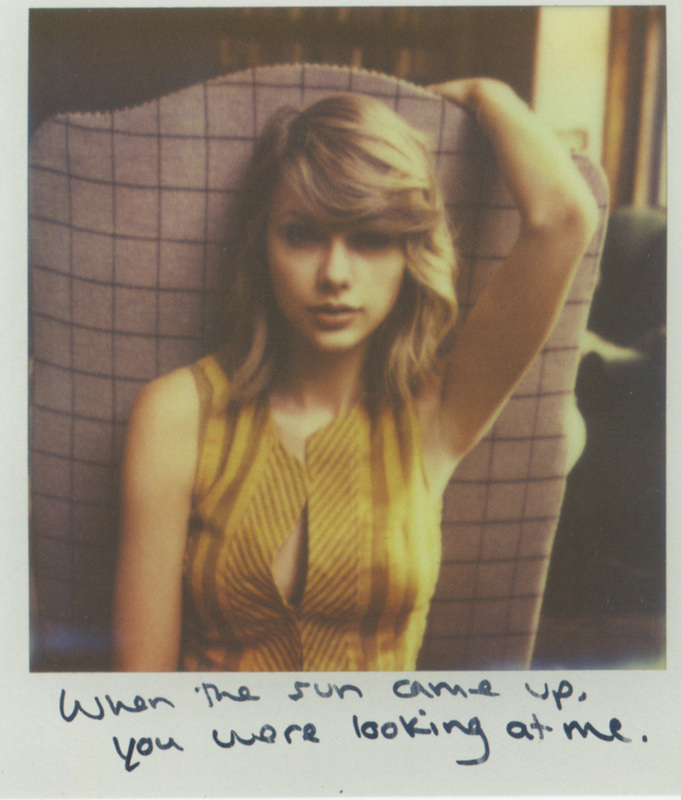 When the sun came up,
you were looking at me.